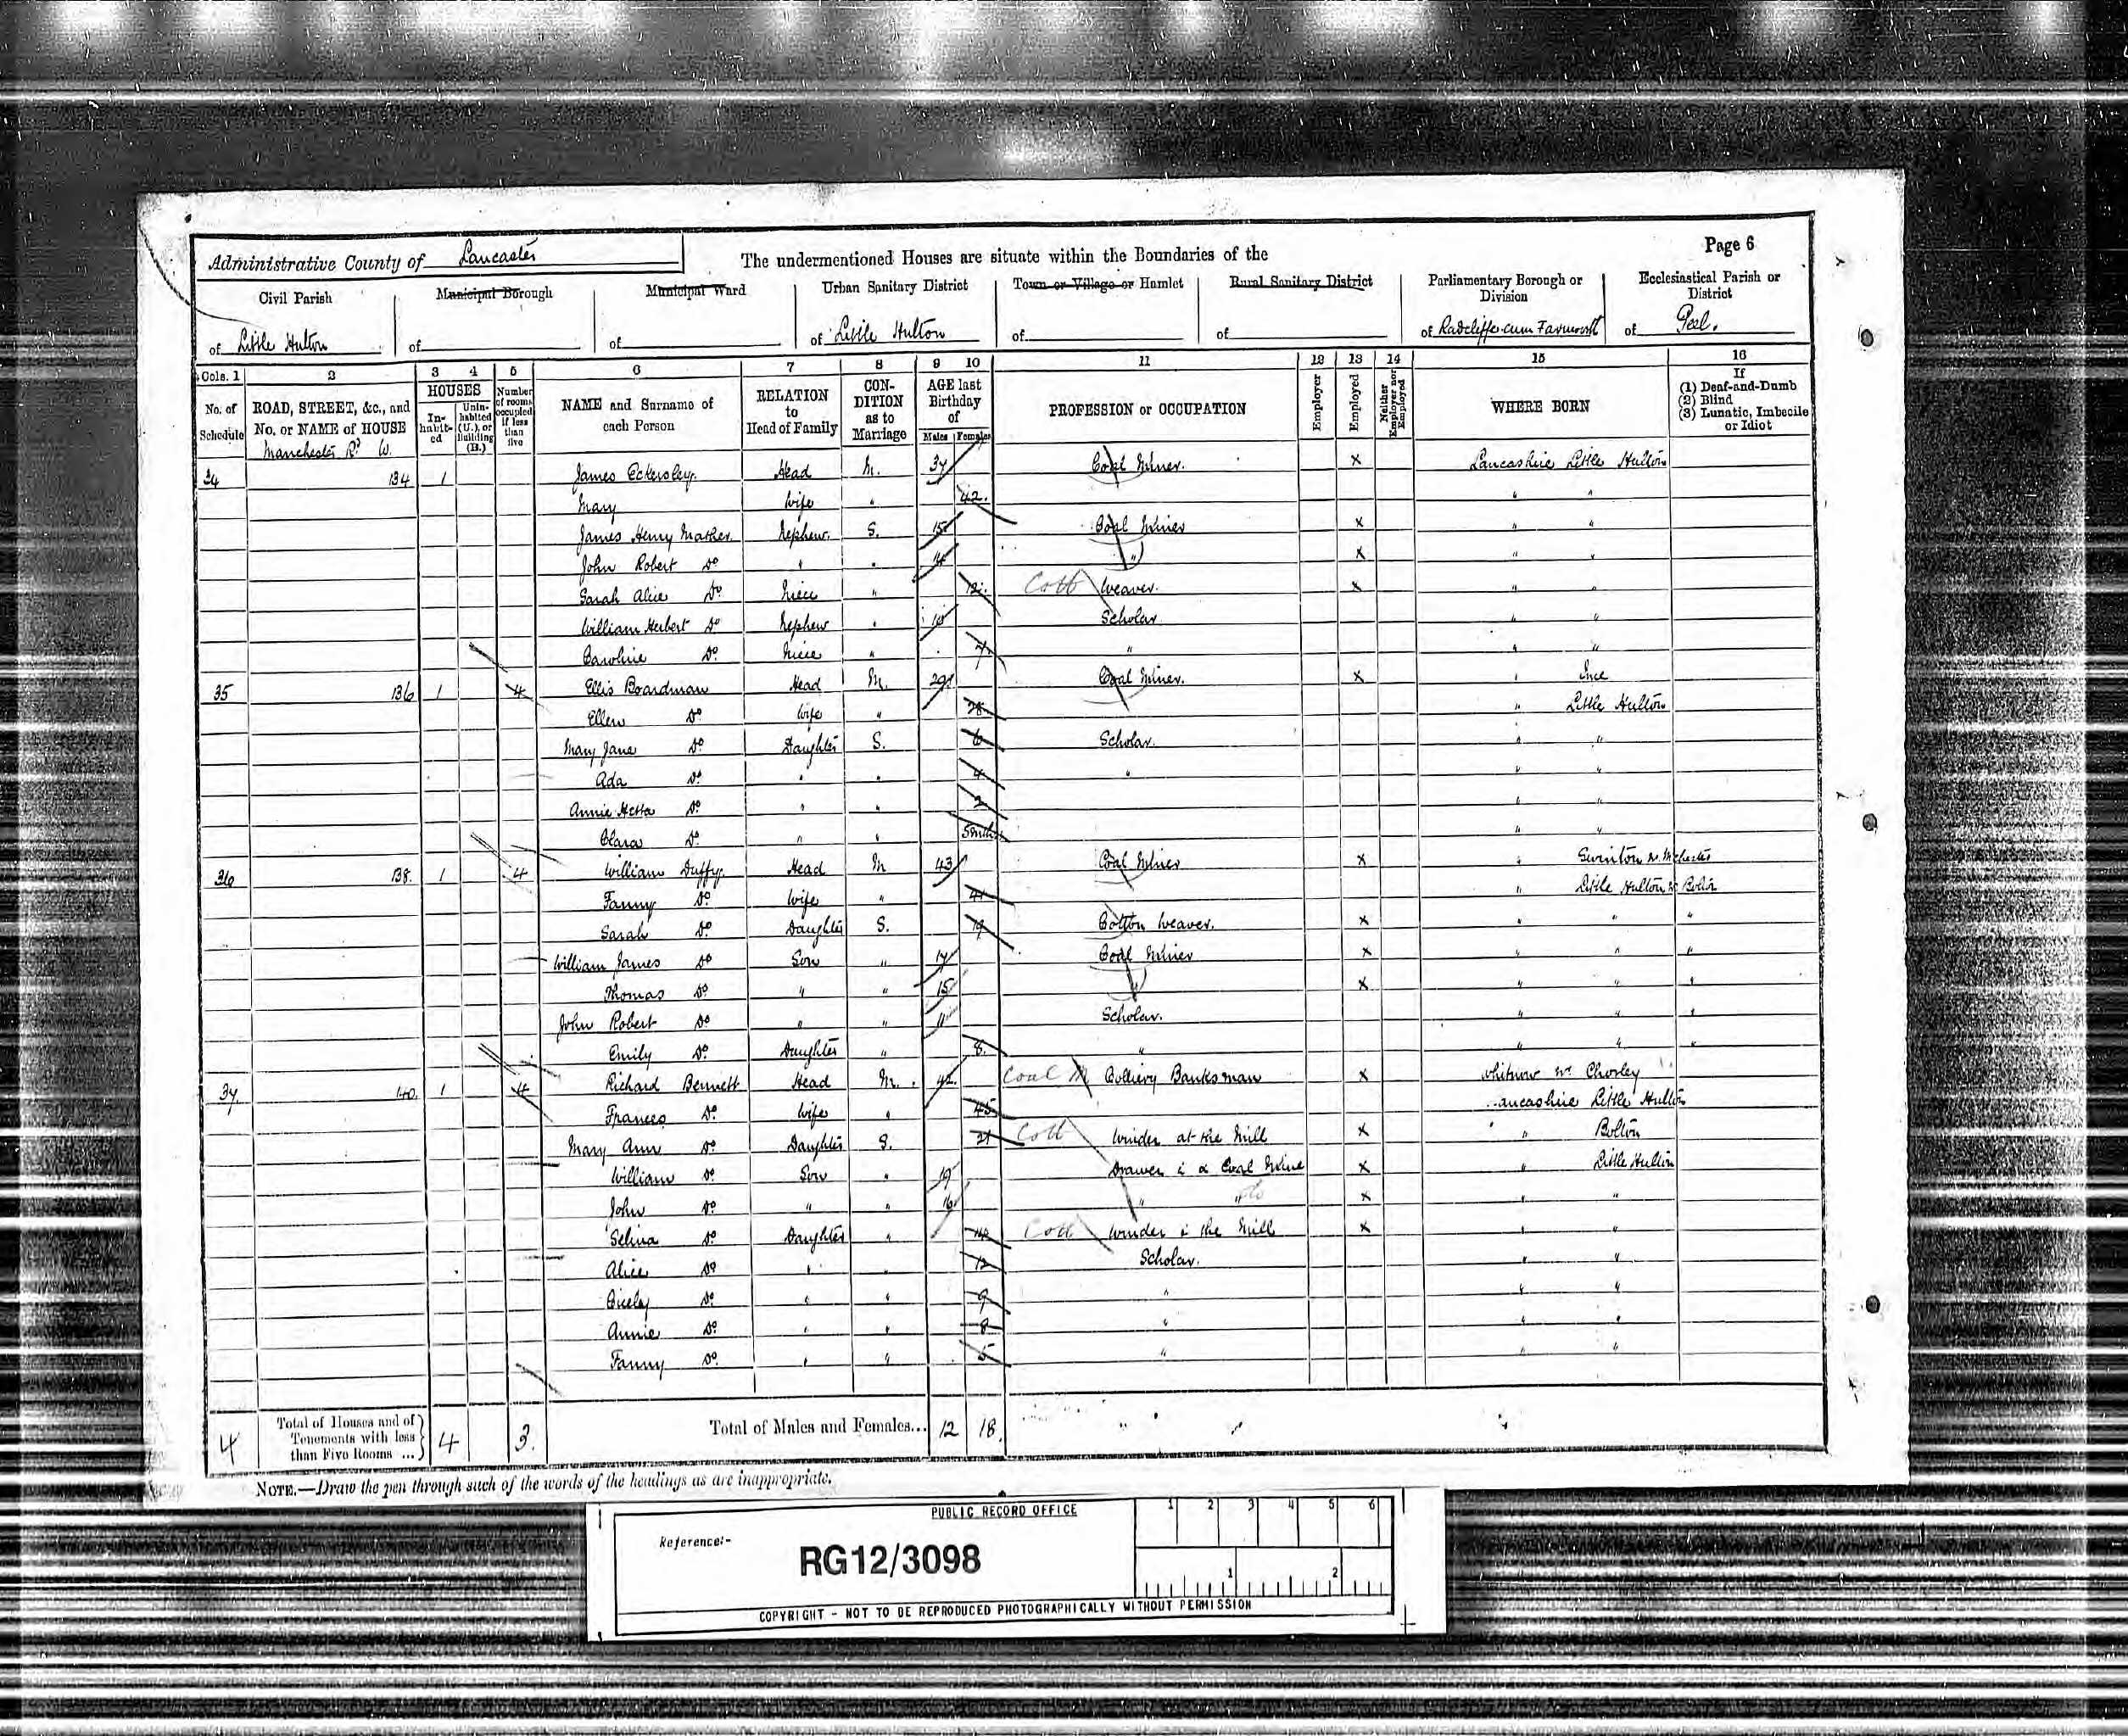 Page 6
Administrative County of Lancaster
The undermentioned Houses are situate within the Boundaries of the
Civil Parish of Little Hulton
Municipal Borough of
Municipal Ward of
Urban Sanitary District of Little Hulton
Town or Village or Hamlet of
Rural Sanitary District of
Parliamentary Borough or Division of Radcliffe cum Farnworth
Ecclesiastical Parish or District of Peel.
Cols. 1 2 3 4 5 6 7 8 9 10 11 12 13 14 15 16
No. of Schedule
ROAD, STREET, &c., and No. or NAME of HOUSE
HOUSES
In-habit-ed
Unin-habited (U.), or Building (B.)
Number of rooms occupied if less than five
NAME and Surname of each Person
RELATION to Head of Family
CON-DITION as to Marriage
AGE last Birthday of
Males Females
PROFESSION or OCCUPATION
Employer
Employed
Neither Employer nor Employed
WHERE BORN
If
(1) Deaf-and-Dumb
(2) Blind
(3) Lunatic, Imbecile or Idiot
Manchester Rd W.
34 134 1 James Eckersley. Head M. 37 Coal Miner. x Lancashire Little Hulton
Mary Wife " 42. " "
James Henry Mather. Nephew. S. 15 Coal Miner x " "
John Robert Do " " 14 " x " "
Sarah Alice Do Niece " 12. Cott Weaver. x " "
William Herbert Do Nephew " 10 Scholar " "
Caroline Do Niece " 7 " " "
35 136 1 4 Ellis Boardman Head M. 29 Coal Miner. x " Ince
Ellen Do Wife " 28 " Little Hulton
Mary Jane Do Daughter S. 6 Scholar. " "
Ada Do " " 4 " " "
Annie Hetta Do " " 2 " "
Clara Do " " 5mths " "
36 138. 1 4 William Duffy. Head M 43 Coal Miner x " Swinton nr. Mchester
Fanny Do Wife " 41 " Little Hulton nr Bolton
Sarah Do Daughter S. 19 Cotton Weaver. x " " "
William James Do Son " 17 Coal Miner x " " "
Thomas Do " " 15 " x " " "
John Robert Do " " 11 Scholar. " " "
Emily Do Daughter " 8. " " " "
37. 140. 1 4 Richard Bennett Head M. 42. Coal M Colliery Banksman x Whitnow nr Chorley
Frances Do Wife " 45 Lancashire Little Hulton
Mary Ann Do Daughter S. 21 Cott Winder at the Mill x " Bolton
William Do Son " 19 Drawer i a Coal Mine x " Little Hulton
John Do " " 16 " " do x " "
Selina Do Daughter " 14 Cott Winder i the Mill x " "
Alice Do " " 12 Scholar. " "
Cicely Do " " 9 " " "
Annie Do " " 8 " " "
Fanny Do " " 5 " " "
4 Total of Houses and of Tenements with less than Five Rooms ... 4 3. Total of Males and Females... 12 18.
NOTE.—Draw the pen through such of the words of the headings as are inappropriate.
PUBLIC RECORD OFFICE
1 2 3 4 5 6
Reference:-
RG12/3098
1 2
COPYRIGHT - NOT TO BE REPRODUCED PHOTOGRAPHICALLY WITHOUT PERMISSION